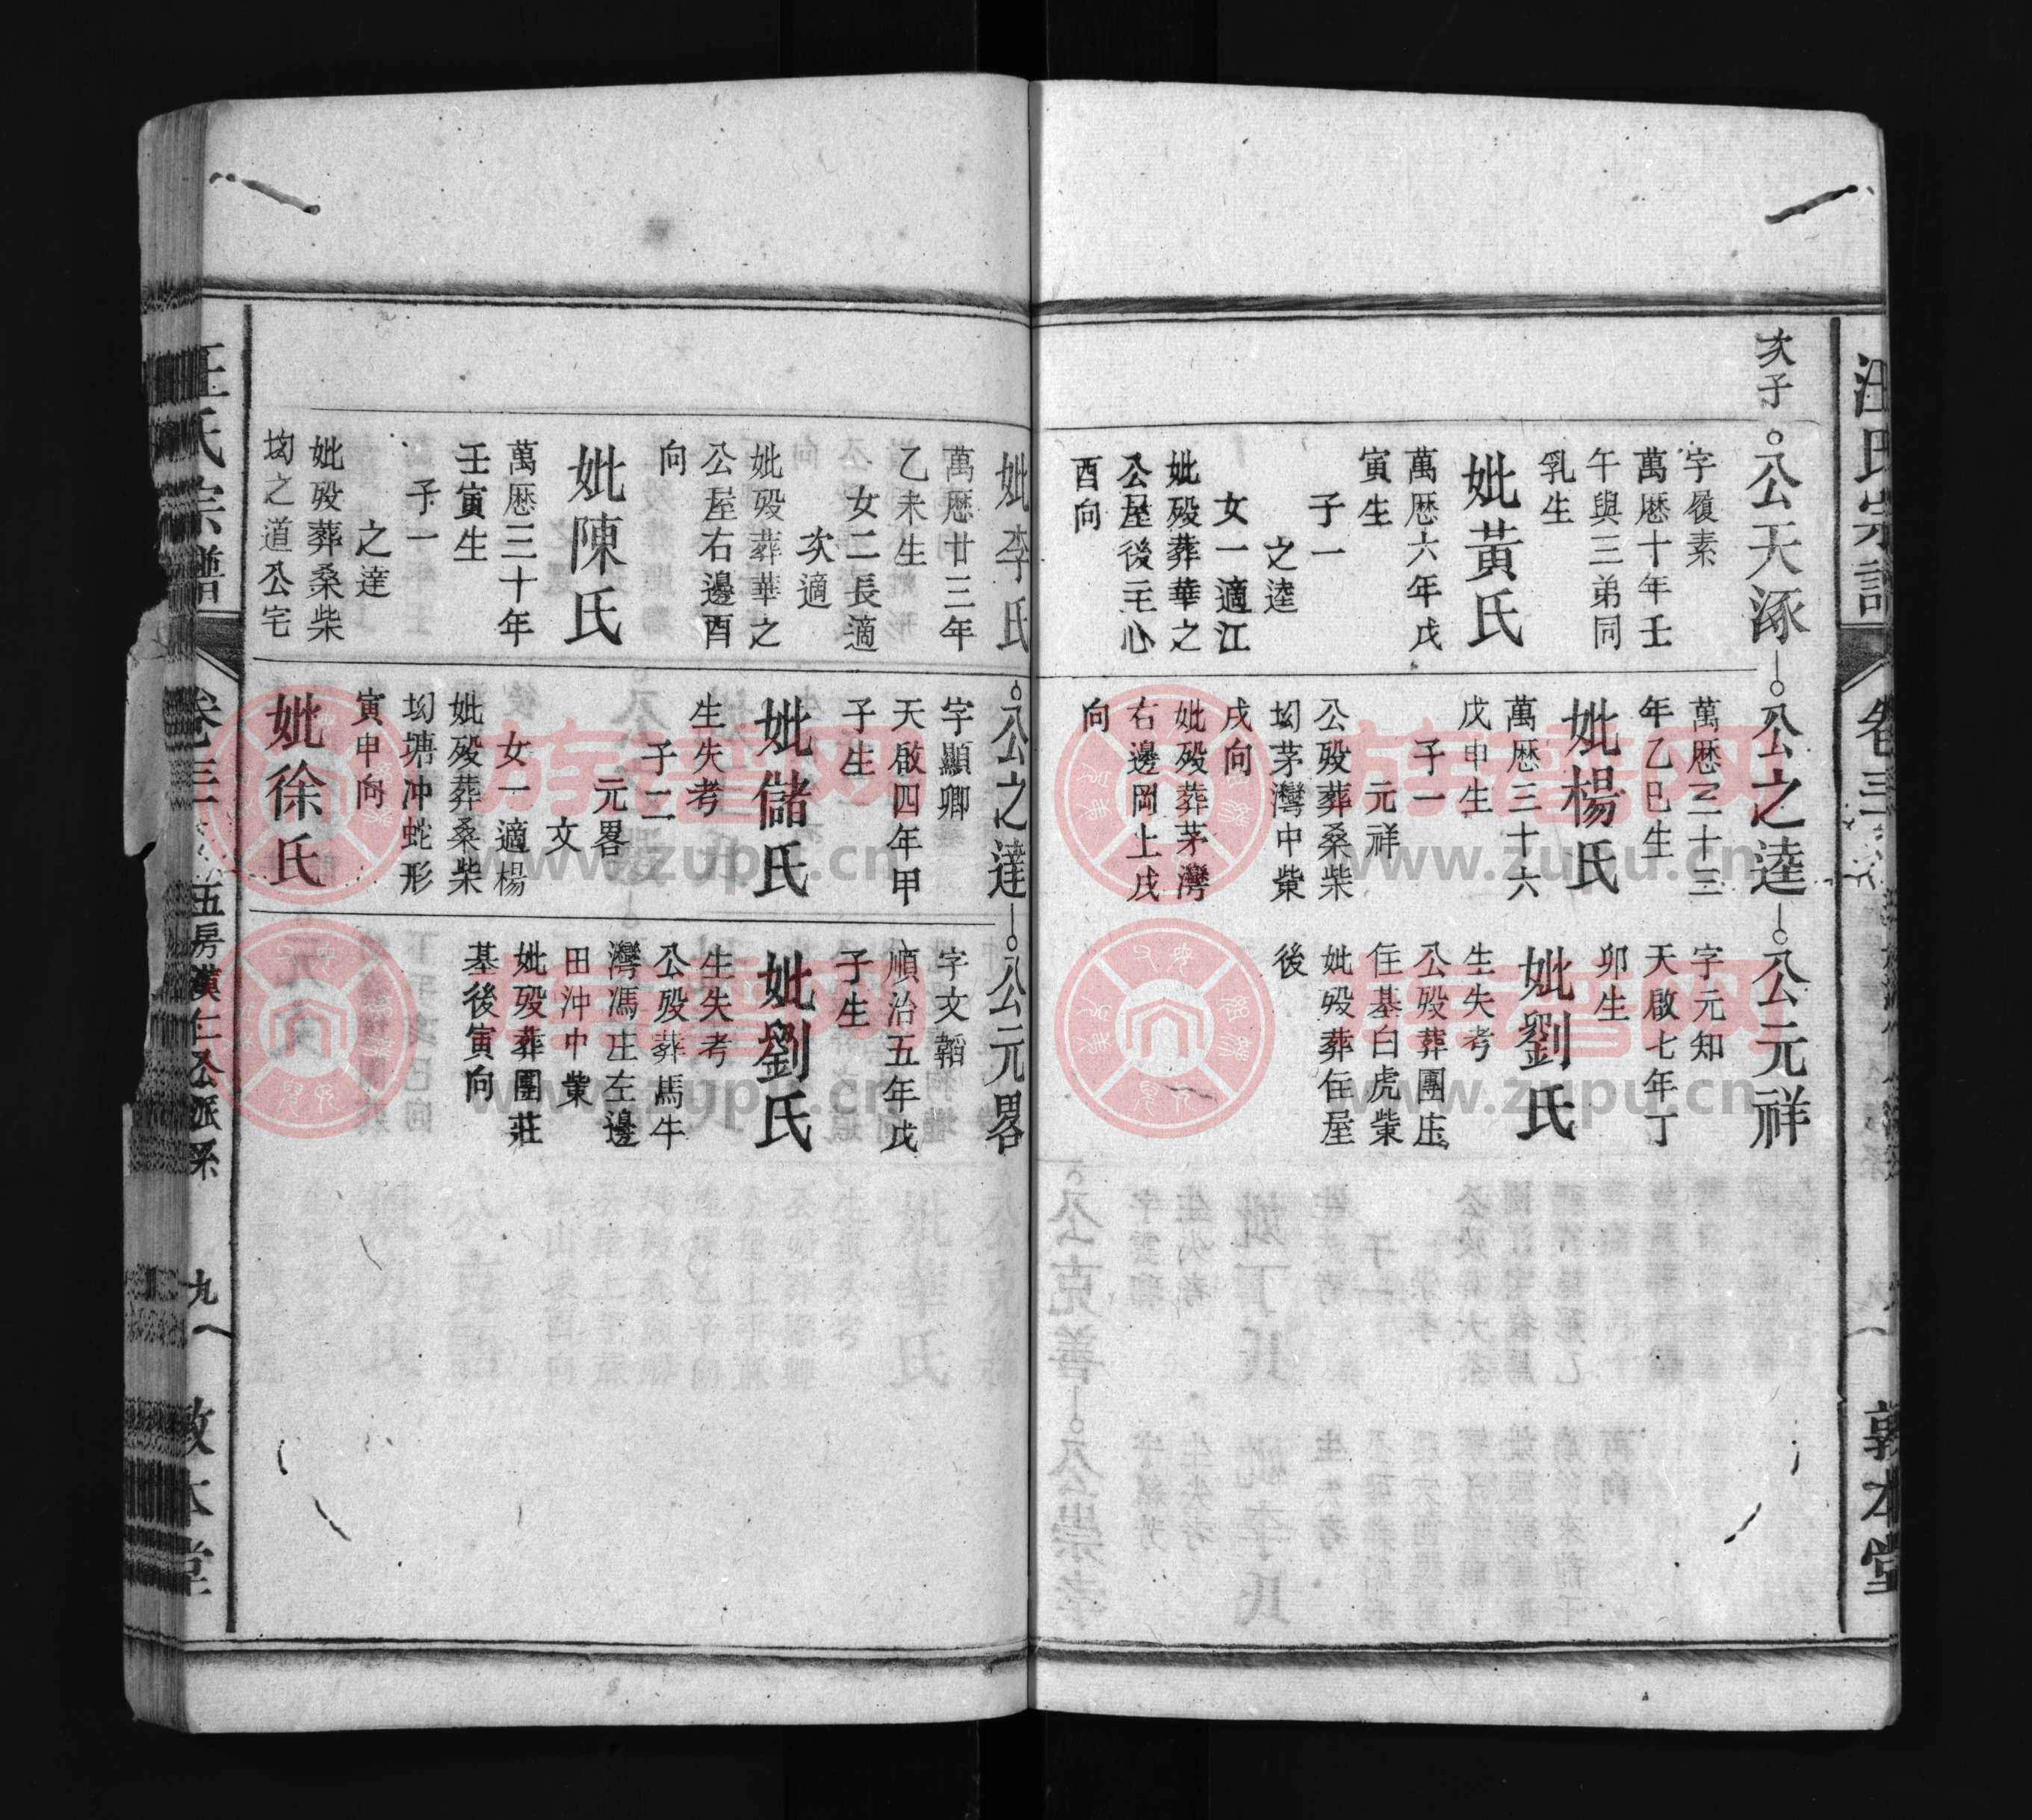 汪氏宗譜
卷三
敦本堂
次子
公天涿
字履素
萬曆十年壬
午與三弟同
乳生
妣黃氏
萬曆六年戊
寅生
子一
之逵
女一適江
妣歿葬華之
公屋後主心
酉向
公之逵
萬曆三十三
年乙巳生
妣楊氏
萬曆三十六
戊申生
子一
元祥
公歿葬桑柴
坳茅灣中塋
戌向
妣歿葬茅灣
右邊岡上戌
向
公元祥
字元知
天啟七年丁
卯生
妣劉氏
生失考
公歿葬團庄
住基白虎塋
妣歿葬住屋
後
妣李氏
萬曆廿三年
乙未生
女二長適
次適
妣歿葬華之
公屋右邊酉
向
妣陳氏
萬曆三十年
壬寅生
子一
之達
妣歿葬桑柴
坳之道公宅
公之達
字顯卿
天啟四年甲
子生
妣儲氏
生失考
子二
元畧
文
女一適楊
妣歿葬桑柴
坳塘冲蛇形
寅申向
妣徐氏
公元畧
字文韜
順治五年戊
子生
妣劉氏
生失考
公歿葬馬牛
灣馮庄左邊
田沖中塋
妣歿葬團莊
基後寅向
汪氏宗譜
卷三
五房漢仁公派系
九
敦本堂
族譜网
www.zupu.cn
族譜网
www.zupu.cn
族譜网
www.zupu.cn
族譜网
www.zupu.cn